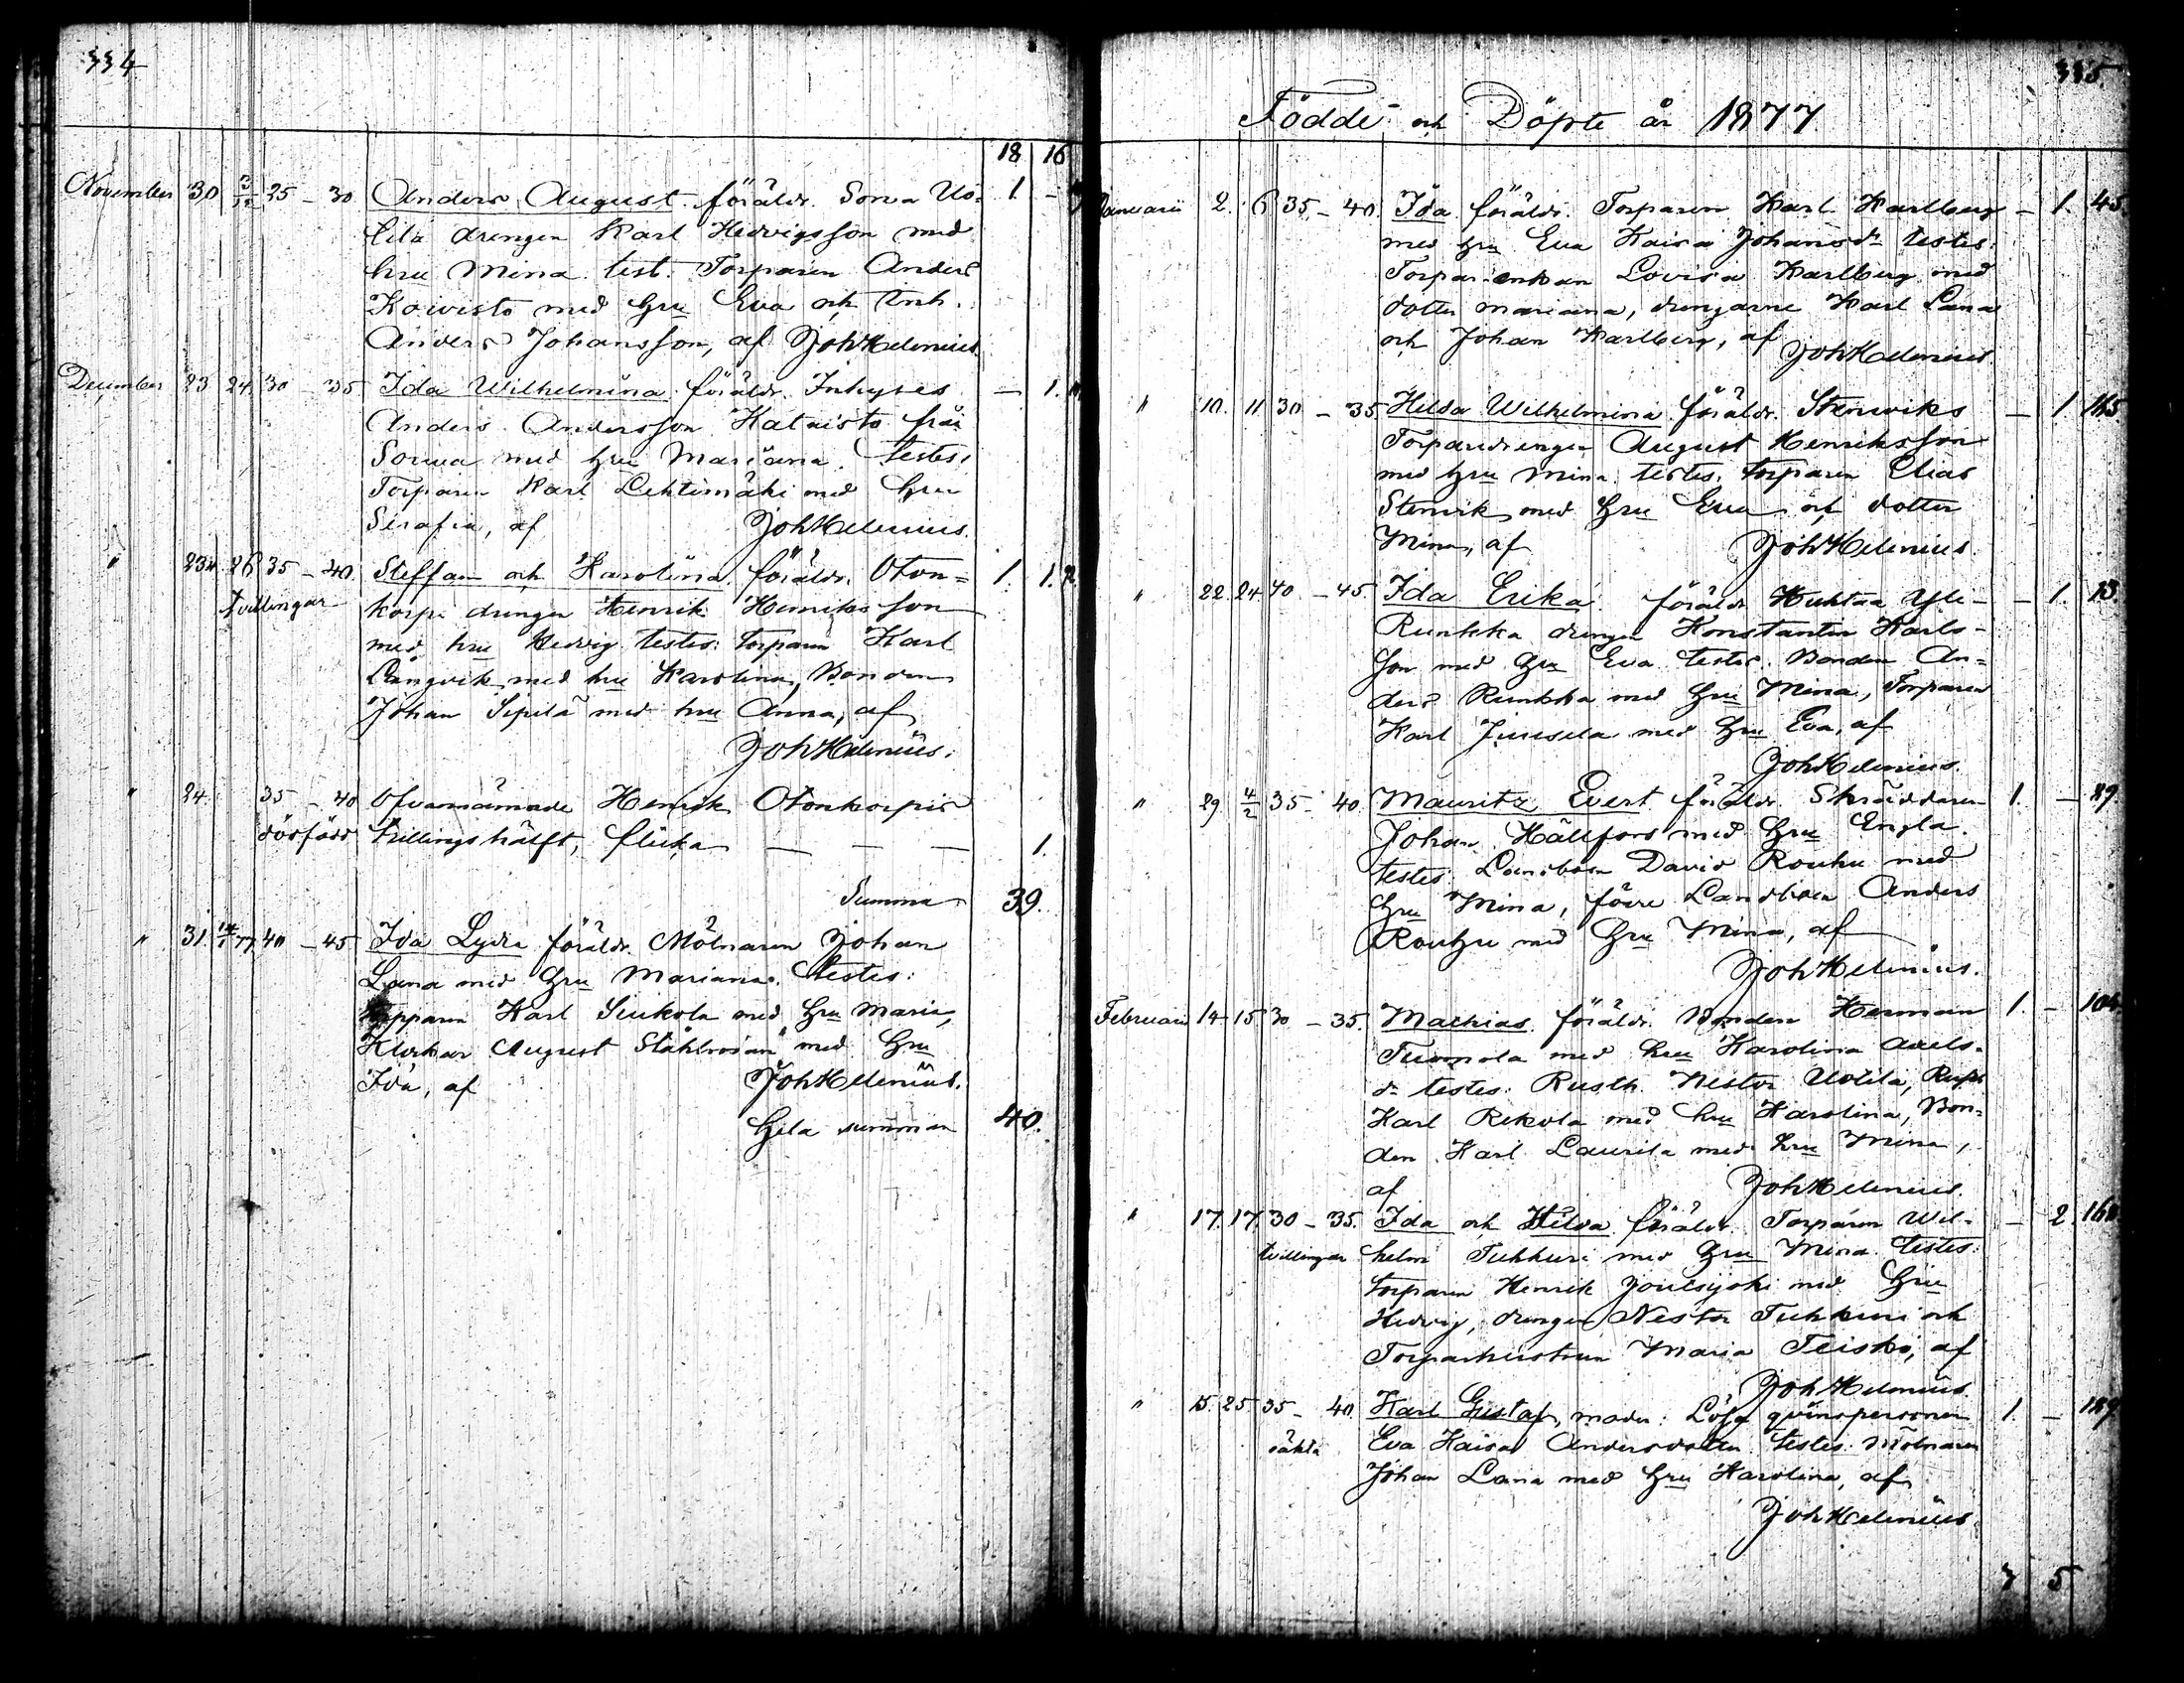 334
18 16
November 30 3/12 25 - 30 Anders August föräldr. Sorva Uo- 1. -
tila drengen Karl Hedvigsson med
hru Mina test. Torparen Anders
Koivisto med hru Eva och Inh.
Anders Johansson, af Joh Helenius.
December 23 24 30 - 35 Ida Wilhelmina föräldr. Inhyses - 1.
Anders Andersson Kataisto från
Sorva med hru Mariana. testes:
Torparen Karl Lehtimäki med hru
Serafia, af Joh Helenius.
" 26 35 - 40. Steffan och Karolina föräldr. Oton= 1. 1.
tvillingar korpi drengen Henrik Henriksson
med hru Hedvig testes: torparen Karl
Långvik med hru Karolina, Bonden
Johan Sipilä med hru Anna, af
Joh Helenius.
" 24 35 - 40 Ofvannämnde Henrik Otonkorpis
dödfödd tvillingshälft, flicka - - - 1.
Summa 39.
" 31. 14/1 77. 40 - 45 Ida Lydia föräldr. Mölnaren Johan
Lana med hru Mariana. testes:
Torparen Karl Siukola med hru Maria,
Klockar August Ståhlros med hru
Ida, af Joh Helenius.
Hela summan 40.
335.
Födde och Döpte år 1877
Januarii 2. 6 35 - 40. Ida föräldr. Torparen Karl Karlberg - 1. 45.
med hru Eva Kaisa Johansdr testes:
Torparenkan Lovisa Karlberg med
dotter Mariana, drengarne Karl Lana
och Johan Karlberg, af
Joh Helenius.
" 10. 11 30 - 35. Hilda Wilhelmina föräldr. Stenviks - 1 165
Torparedrengen August Henriksson
med hru Mina. testes. torparen Elias
Stenvik med hru Eva och dotter
Mina, af Joh Helenius.
" 22. 24. 40 - 45. Ida Erika. föräldr Huhtaa Yli- - 1. 13.
Runkka drengen Konstantin Karls-
son med hru Eva testes. Bonden An=
ders Runkka med hru Mina, Torparen
Karl Juusela med hru Eva, af
Joh Helenius.
" 29. 4/2 35 - 40. Mauritz Evert föräldr Skräddaren 1. - 89.
Johan Hällfors med hru Engla.
testes. Landboen David Rouhu med
hru Mina, förre Landboen Anders
Rouhu med hru Mina, af
Joh Helenius.
Februarii 14 15 30 - 35. Mathias föräldr. Bonden Herman 1. - 104.
Tuomola med hru Karolina Axels-
dr testes: Rusth. Nestor Uotila, Rusth
Karl Rekola med hru Karolina, Bon=
den Karl Laurila med hru Mina,
af Joh Helenius.
" 17. 17. 30 - 35. Ida och Hilda föräldr Torparen Wil- - 2.
tvillingar helm Tuhkuri med hru Mina testes:
torparen Henrik Joutsijoki med hru
Hedvig, drengen Nestor Tuhkuri och
Torparhustrun Maria Teisko, af
Joh Helenius
" 15. 25 35 - 40. Karl Gustaf, moder: Lösa qvinspersonen 1. - 189
oäkta Eva Kaisa Andersdotter testes: Mölnaren
Johan Lana med hru Karolina, af
Joh Helenius.
3 5